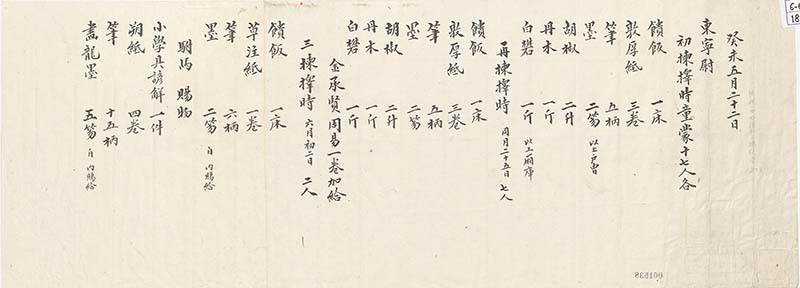 癸未五月二十二日
東寧尉
初揀擇時童蒙十七人各
饋飯 一床
敦厚紙 三卷
筆 五柄
墨 二笏 以上戶曹
胡椒 二升
丹木 一斤
白礬 一斤 以上廂庫
再揀擇時 同月二十五日 七人
饋飯 一床
敦厚紙 三卷
筆 五柄
墨 二笏
胡椒 二升
丹木 一斤
白礬 一斤
金承賢周易一卷加給
三揀擇時 六月初二日 二人
饋飯 一床
草注紙 一卷
筆 六柄
墨 二笏 自內賜給
駙馬 賜物
小學具諺解 一件
朔紙 四卷
筆 十五柄
畫龍墨 五笏 自內賜給
001538